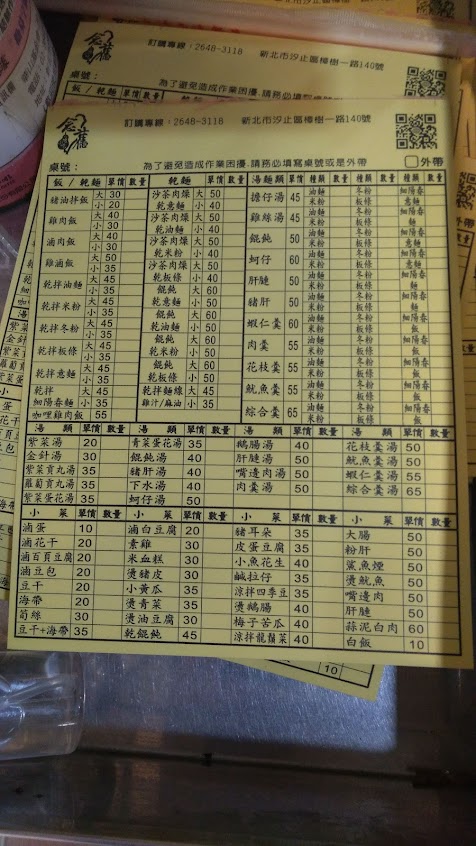 訂購專線：2648-3118 新北市汐止區樟樹一路140號
桌號：
飯 / 乾 麵 單價 數量
念舊
訂購專線：2648-3118 新北市汐止區樟樹一路140號
桌號： 為了避免造成作業困擾,請務必填寫桌號或是外帶 外帶
飯 / 乾 麵 單價 數量 乾 麵 單價 數量 湯 麵 類 單價 種類 數量 種類 數量 種類 數量
豬油拌飯 大 30 小 20
雞肉飯 大 40 小 30
滷肉飯 大 40 小 30
雞滷飯 大 50 小 35
乾拌油麵 大 45 小 35
乾拌米粉 大 45 小 35
乾拌冬粉 大 45 小 35
乾拌板條 大 45 小 35
乾拌意麵 大 45 小 35
乾拌細陽春麵 大 45 小 35
咖哩雞肉飯 55
沙茶肉燥乾意麵 大 50 小 40
沙茶肉燥乾油麵 大 50 小 40
沙茶肉燥乾米粉 大 50 小 40
沙茶肉燥乾板條 大 50 小 40
餛飩乾意麵 大 60 小 50
餛飩乾油麵 大 60 小 50
餛飩乾米粉 大 60 小 50
餛飩乾板條 大 60 小 50
乾拌麵線雞汁/麻油 大 45 小 35
擔仔湯 45 油麵 米粉 冬粉 板條 細陽春 意麵
雞絲湯 45 油麵 米粉 冬粉 板條 細陽春 意麵
餛飩 50 油麵 米粉 冬粉 板條 細陽春 意麵
蚵仔 60 油麵 米粉 冬粉 板條 細陽春 麵
肝腱 50 油麵 米粉 冬粉 板條 細陽春 麵
豬肝 50 油麵 米粉 冬粉 板條 細陽春 麵
蝦仁羹 60 油麵 米粉 冬粉 板條 細陽春 麵
肉羹 55 油麵 米粉 冬粉 板條 細陽春 麵
花枝羹 55 油麵 米粉 冬粉 板條 細陽春 麵
魷魚羹 55 油麵 米粉 冬粉 板條 細陽春 麵
綜合羹 65 油麵 米粉 冬粉 板條 細陽春 麵
湯 類 單價 數量 湯 類 單價 數量 湯 類 單價 數量 湯 類 單價 數量
紫菜湯 20 青菜蛋花湯 35 鵝腸湯 40 花枝羹湯 50
金針湯 30 餛飩湯 40 肝腱湯 50 魷魚羹湯 50
紫菜貢丸湯 35 豬肝湯 40 嘴邊肉湯 50 蝦仁羹湯 55
蘿蔔貢丸湯 35 下水湯 40 肉羹湯 50 綜合羹湯 65
紫菜蛋花湯 35 蚵仔湯 50
小 菜 單價 數量 小 菜 單價 數量 小 菜 單價 數量 小 菜 單價 數量
滷蛋 10 滷白豆腐 20 豬耳朵 35 大腸 50
滷花干 20 素雞 30 皮蛋豆腐 35 粉肝 50
滷百頁豆腐 20 米血糕 30 小魚花生 40 鯊魚煙 50
滷豆包 20 燙豬皮 30 鹹拉仔 35 燙魷魚 50
豆干 20 小黃瓜 35 涼拌四季豆 35 嘴邊肉 50
海帶 20 燙青菜 35 燙鵝腸 40 肝腱 50
筍絲 30 燙油豆腐 30 梅子苦瓜 40 蒜泥白肉 60
豆干+海帶 35 乾餛飩 45 涼拌龍鬚菜 40 白飯 10
10